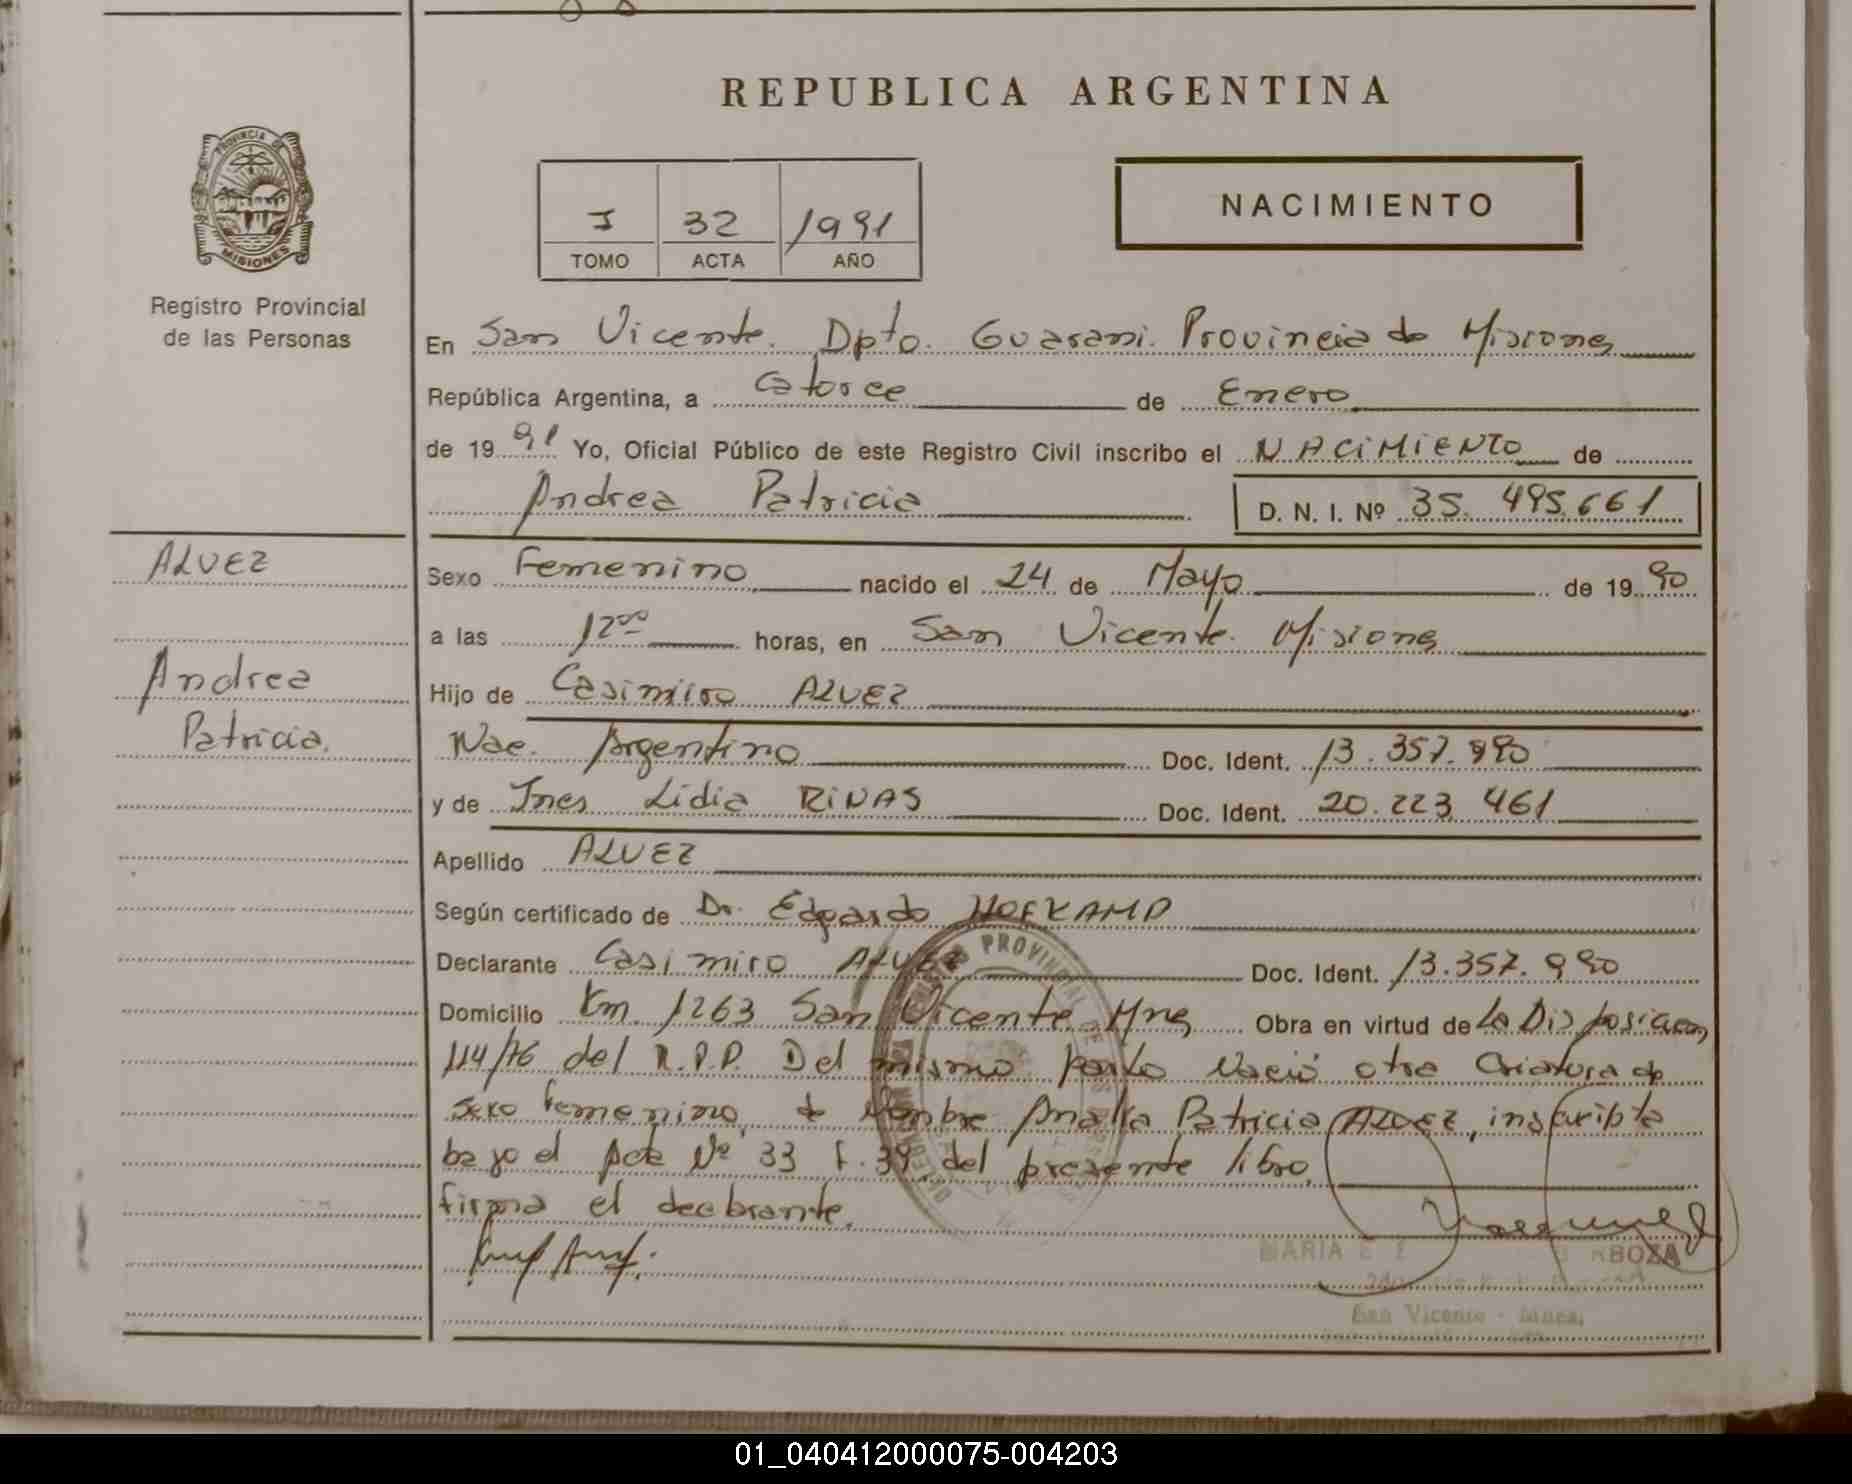 REPUBLICA ARGENTINA
PROVINCIA DE MISIONES
Registro Provincial
de las Personas
I 32 1991
TOMO ACTA AÑO
NACIMIENTO
En San Vicente. Dpto. Guarani. Provincia de Misiones
República Argentina, a Catorce de Enero
de 1991 Yo, Oficial Público de este Registro Civil inscribo el NACIMIENTO de
Andrea Patricia D. N. I. Nº 35.495.661
ALVEZ
Andrea
Patricia.
Sexo Femenino nacido el 24 de Mayo de 1990
a las 12⁰⁰ horas, en San Vicente. Misiones
Hijo de Casimiro ALVEZ
Nac. Argentino Doc. Ident. 13.357.990
y de Ines Lidia RIVAS Doc. Ident. 20.223.461
Apellido ALVEZ
Según certificado de Dr. Edgardo HOFKAMP
Declarante Casimiro ALVEZ Doc. Ident. 13.357.990
Domicilio Km. 1263 San Vicente Mnes Obra en virtud de La Disposicion
114/76 del R.P.P. Del mismo parto Nació otra Criatura de
sexo Femenino, de Nombre Analia Patricia ALVEZ, inscripta
bajo el Acta Nº 33 F. 39 del presente libro.
firma el declarante.
MARIA E BOZA
San Vicente - Mnes.
01_040412000075-004203